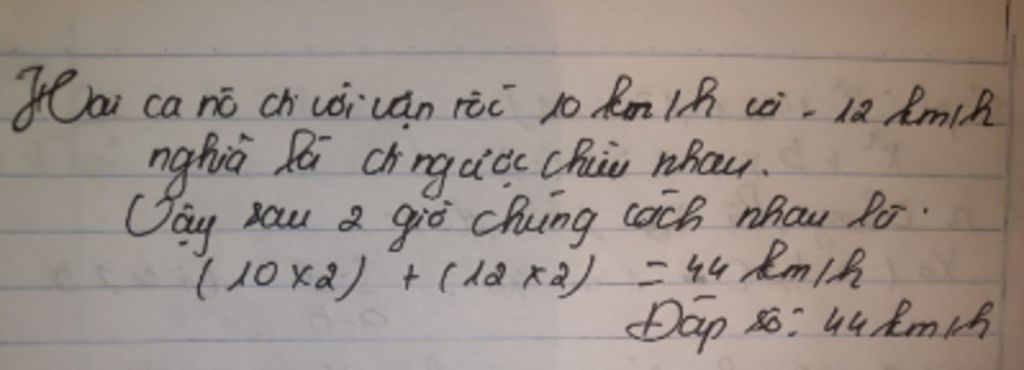 Hai ca nô đi với vận tốc 10 km/h và - 12 km/h
nghĩa là đi ngược chiều nhau.
Vậy sau 2 giờ chúng cách nhau là:
(10 x 2) + (12 x 2) = 44 km/h
Đáp số: 44 km/h